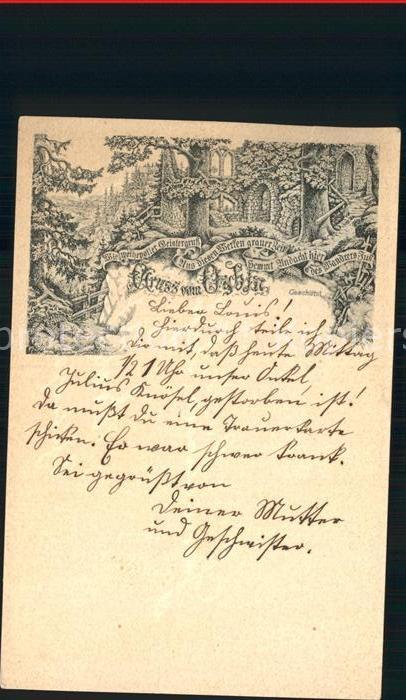 Wie weihevoller Geistergruß
Aus diesen Werken grauer Zeit
Hemmt Andacht hier
des Wandrers Fuß
Gruss vom Oybin.
Geschützt.
Lieber Louis!
Hierdurch teile ich
Dir mit, daß heute Mittag
1/2 1 Uhr unser Onkel,
Julius Knösel, gestorben ist!
Da mußt du eine Trauerkarte
schicken. Er war schwer krank.
Sei gegrüßt von
Deiner Mutter
und Geschwister.